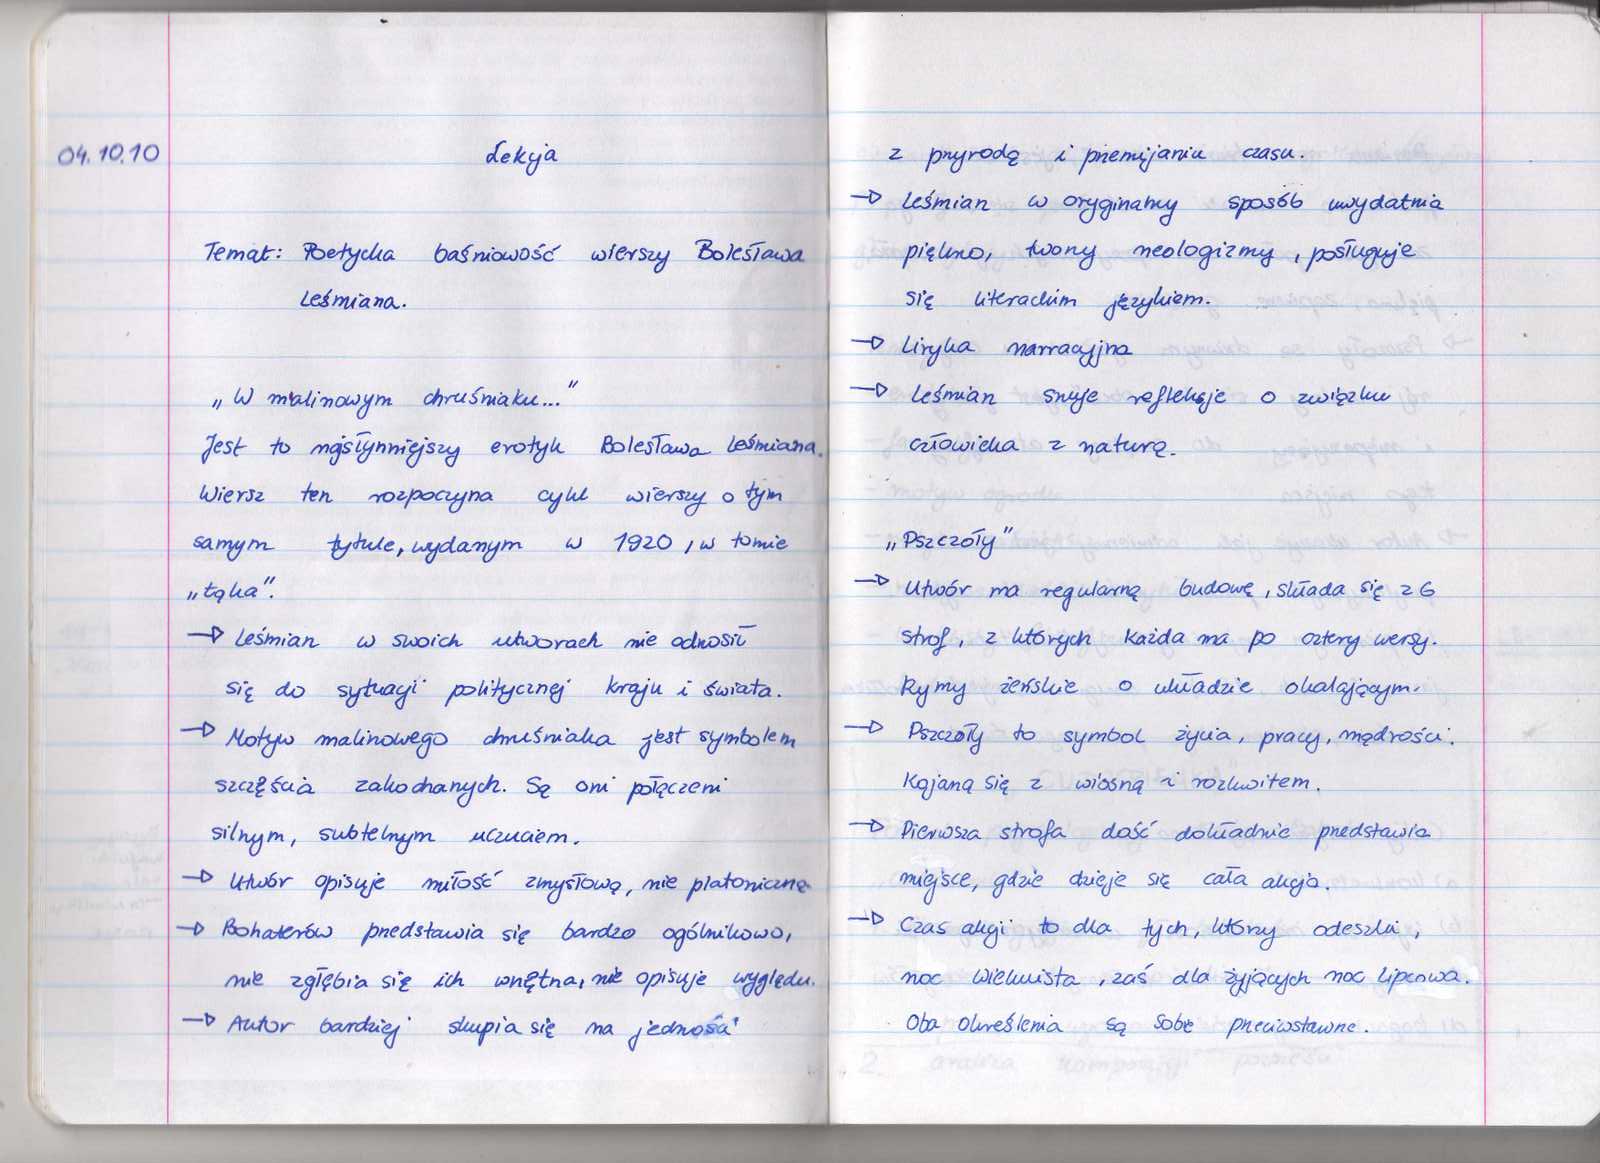 04.10.10
Lekcja
Temat: Poetycka baśniowość wierszy Bolesława
Leśmiana.
„W malinowym chruśniaku..."
Jest to najsłynniejszy erotyk Bolesława Leśmiana.
Wiersz ten rozpoczyna cykl wierszy o tym
samym tytule, wydanym w 1920, w tomie
„Łąka".
→ Leśmian w swoich utworach nie odnosił
się do sytuacji politycznej kraju i świata.
→ Motyw malinowego chruśniaka jest symbolem
szczęścia zakochanych. Są oni połączeni
silnym, subtelnym uczuciem.
→ Utwór opisuje miłość zmysłową, nie platoniczną
→ Bohaterów przedstawia się bardzo ogólnikowo,
nie zgłębia się ich wnętrza, nie opisuje wyglądu.
→ Autor bardziej skupia się na jedności
z przyrodą i przemijaniu czasu.
→ Leśmian w oryginalny sposób uwydatnia
piękno, tworzy neologizmy, posługuje
się literackim językiem.
→ Liryka narracyjna
→ Leśmian snuje refleksje o związku
człowieka z naturą.
„Pszczoły"
→ Utwór ma regularną budowę, składa się z 6
strof, z których każda ma po cztery wersy.
Rymy żeńskie o układzie okalającym.
→ Pszczoły to symbol życia, pracy, mądrości.
Kojarzą się z wiosną i rozkwitem.
→ Pierwsza strofa dość dokładnie przedstawia
miejsce, gdzie dzieje się cała akcja.
→ Czas akcji to dla tych, którzy odeszli,
noc wiekuista, zaś dla żyjących noc lipcowa.
Oba określenia są sobie przeciwstawne.